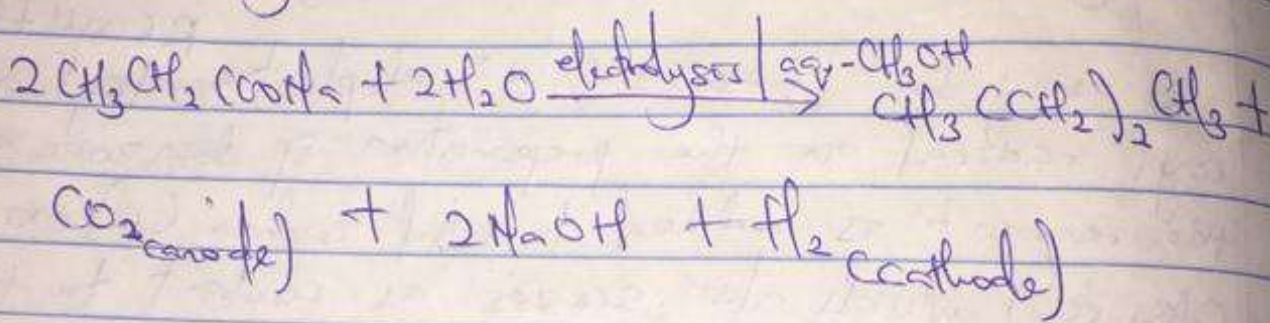 2CH₃CH₂COONa + 2H₂O electrolysis / aq-CH₃OH → CH₃(CH₂)₂CH₃ +
CO₂(anode) + 2NaOH + H₂(cathode)